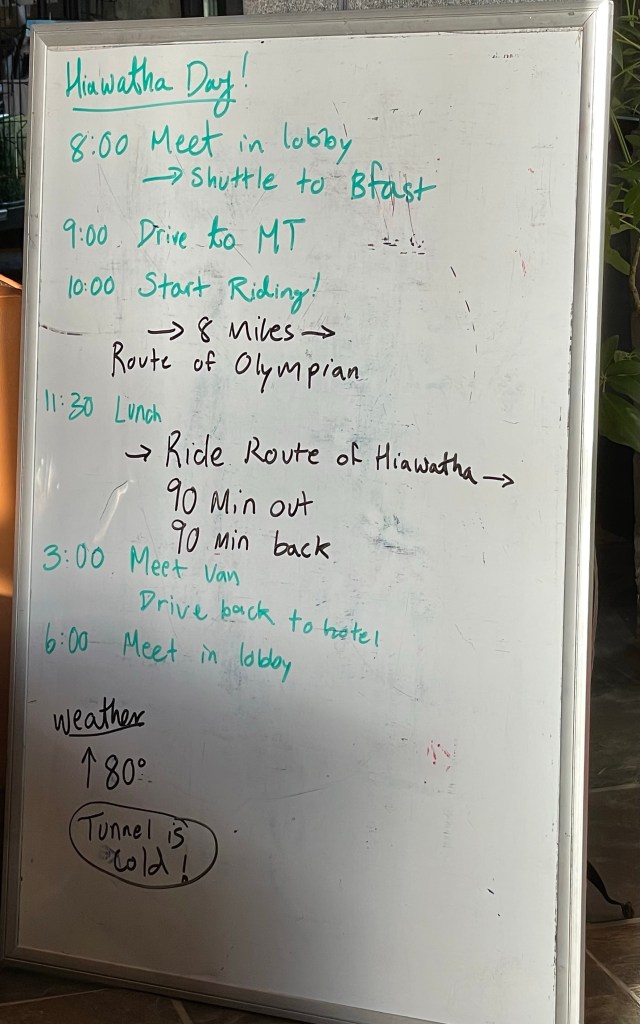 Hiawatha Day!
8:00 Meet in lobby
→ Shuttle to Bfast
9:00 Drive to MT
10:00 Start Riding!
→ 8 Miles →
Route of Olympian
11:30 Lunch
→ Ride Route of Hiawatha →
90 Min out
90 min back
3:00 Meet Van
Drive back to hotel
6:00 Meet in lobby
weather
↑ 80°
Tunnel is
cold!